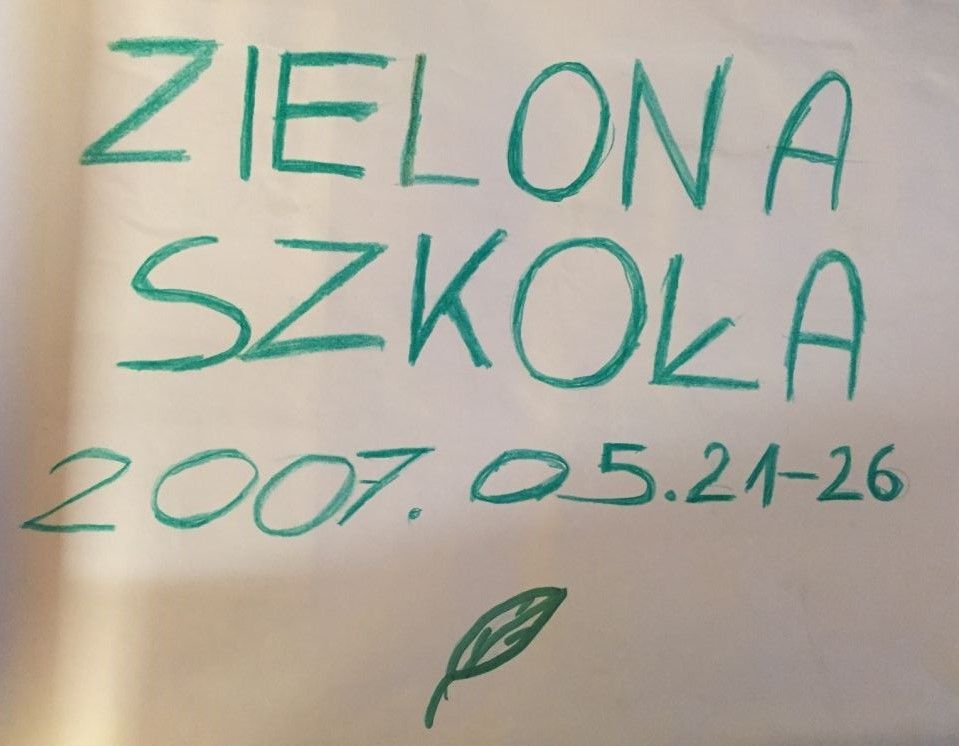 ZIELONA
SZKOŁA
2007. 05.21-26